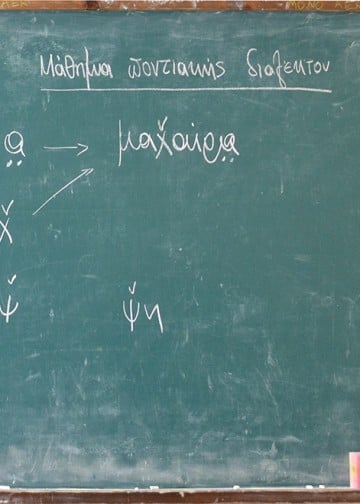 Μάθημα ποντιακής διαλέκτου
α̤ → μαχ̌αίρα̤
χ̌
ψ̌ ψ̌η